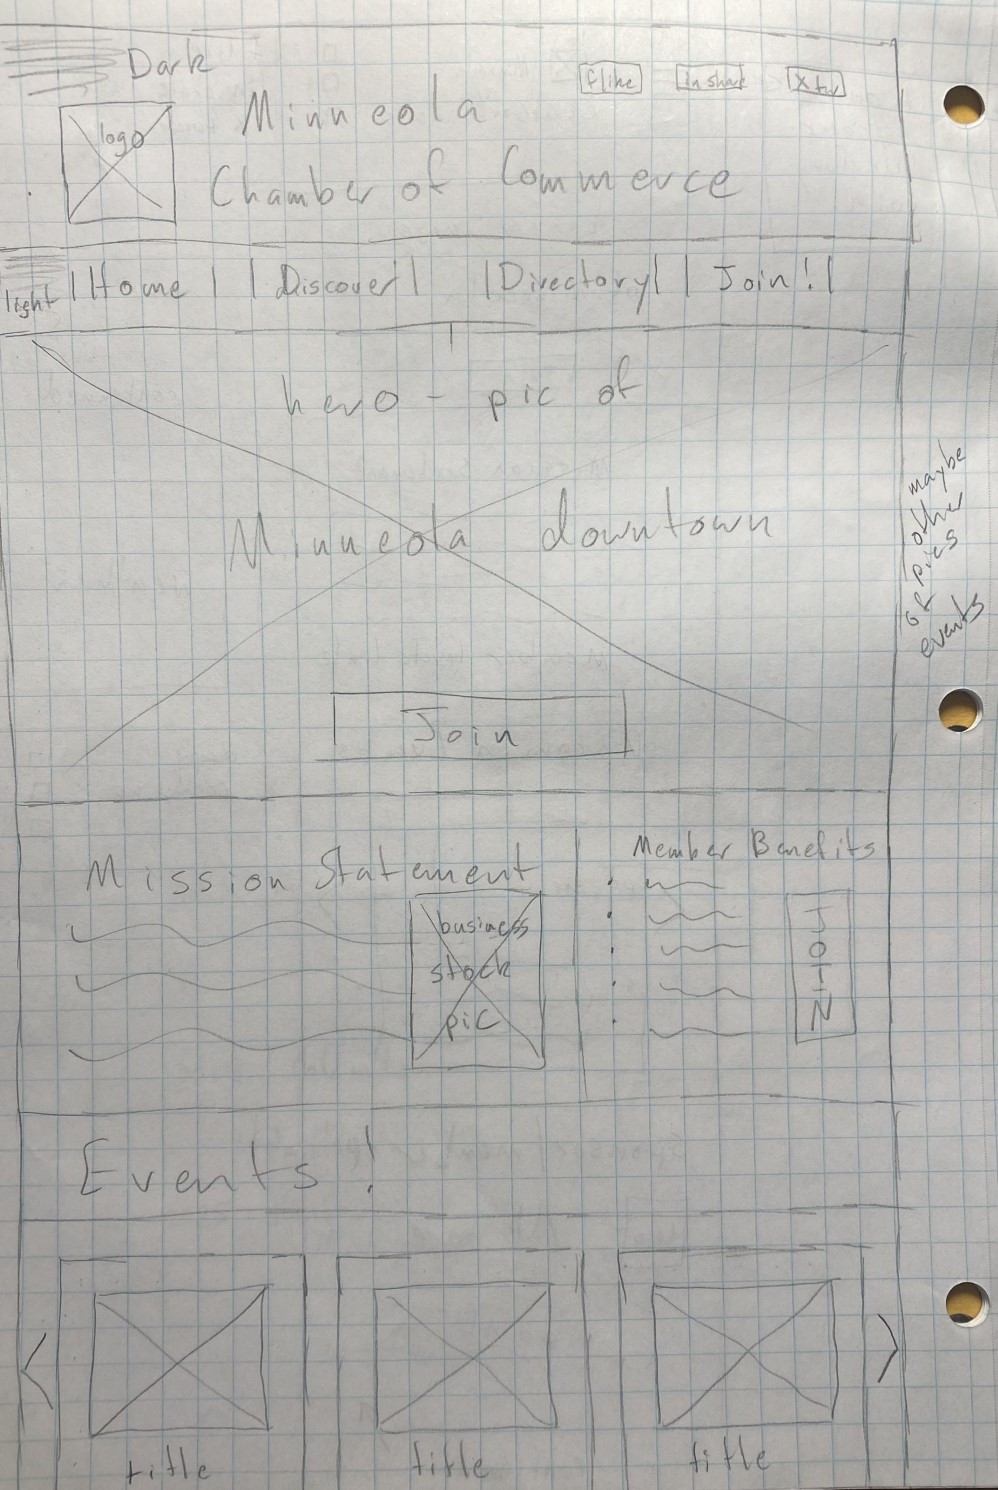 Dark
f like in share X twt
logo
Minneola
Chamber of Commerce
light
Home Discover! Directory Join!
hero - pic of
Minneola downtown
maybe
other
pics
of
events
Join
Mission Statement
business
stock
pic
Member Benefits
JOIN
Events!
< >
title title title